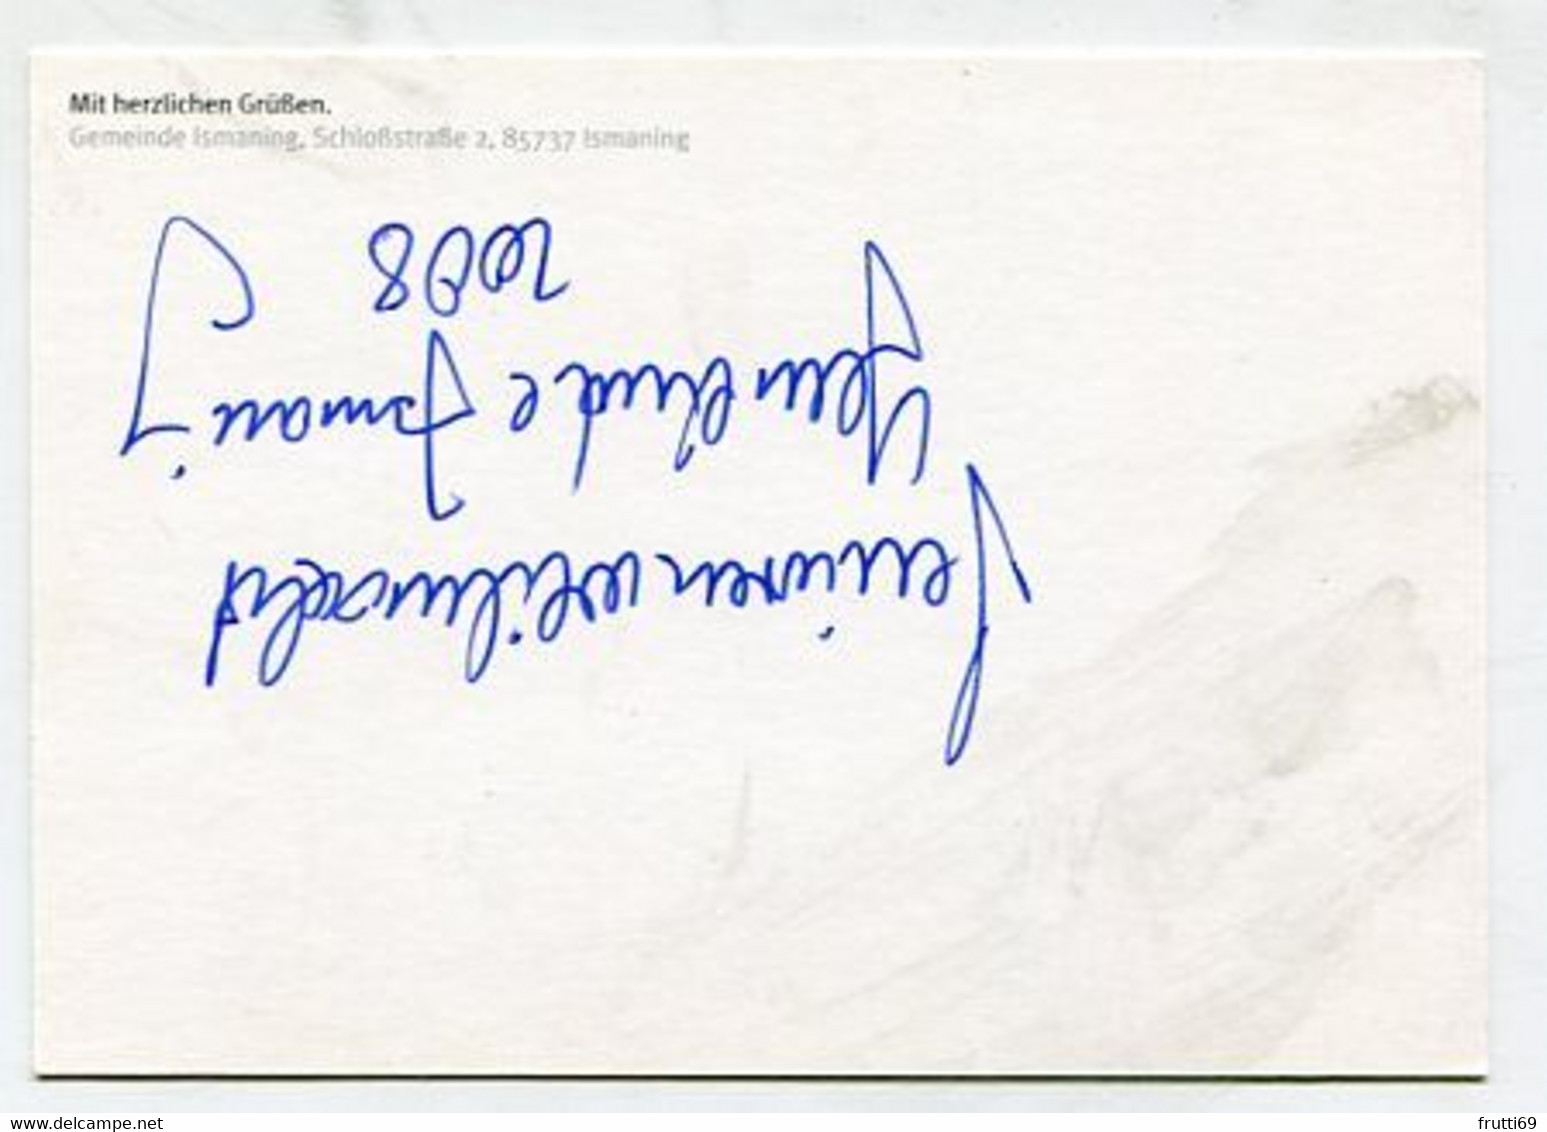 Mit herzlichen Grüßen.
Gemeinde Ismaning, Schloßstraße 2, 85737 Ismaning
Seniorenweihnacht
Gemeinde Ismaning
2008
www.delcampe.net
frutti69